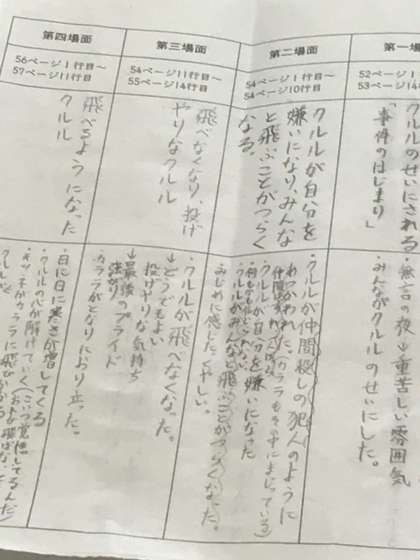 第一場
52ページ1
53ページ14
クルルのせいにされる
「事件のはじまり」
・無言の夜→重苦しい雰囲気
・みんながクルルのせいにした。
第二場面
54ページ1行目~
54ページ10行目
クルルが自分を
嫌いになり、みんな
と飛ぶことがつらく
なる。
・クルルが仲間殺しの犯人のように
あつかわれた。(カララもその中にまじっている)
クルルが自分を嫌いになった
クルルがみんなと飛ぶことがつらくなった。
みじめに感じた。くやしい。
第三場面
54ページ11行目~
55ページ14行目
飛べなくなり、投げ
やりなクルル
・クルルが飛べなくなった。
→どうでもよい
投げやりな気持ち
→最後のプライド
カララがとなりにおり立った。
第四場面
56ページ1行目~
57ページ11行目
飛べるようになった
クルル
・日に日に寒さが増してくる
・クルルの心が解けていく
・キツネがカララに飛びかかる